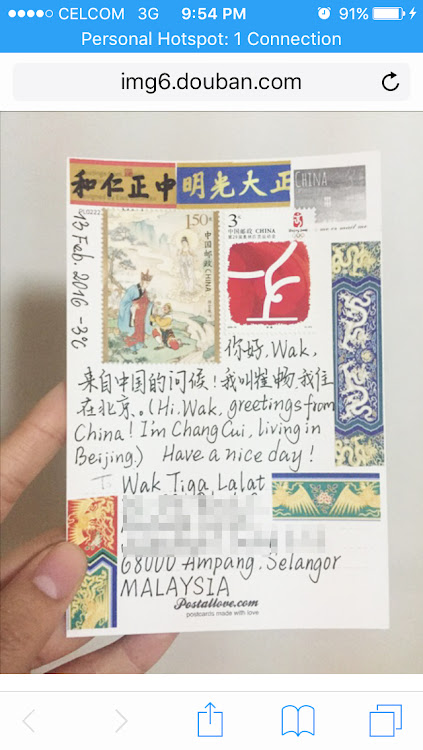 CELCOM 3G 9:54 PM 91%
Personal Hotspot: 1 Connection
img6.douban.com
和仁正中
明光大正
CHINA
13 Feb. 2016 -3℃
1.50元
中国邮政 CHINA
3元
中国邮政 CHINA
你好, Wak,
来自中国的问候!我叫崔畅,我住
在北京。(Hi, Wak, greetings from
China! I'm Chang Cui, living in
Beijing.) Have a nice day!
To Wak Tiga Lalat
68000 Ampang. Selangor
MALAYSIA
Postallove.com
postcards made with love